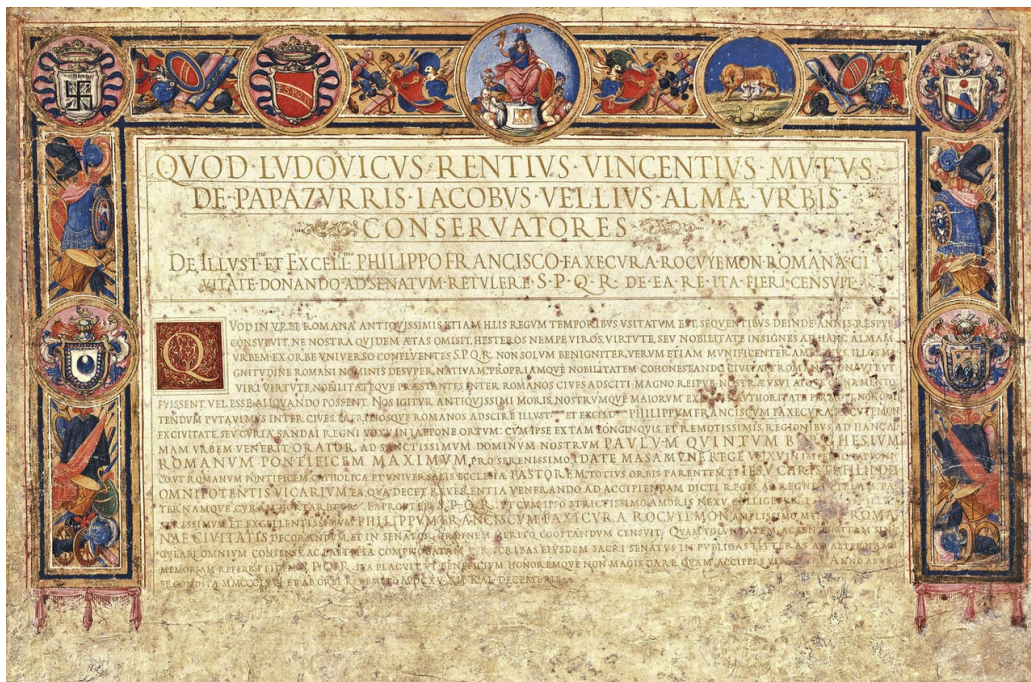 QVOD·LVDOVICVS·RENTIVS·VINCENTIVS·MVTVS
DE·PAPAZVRRIS·IACOBVS·VELLIVS·ALMÆ·VRBIS
CONSERVATORES
DE ILLVST^mo ET EXCELL^mo PHILIPPO FRANCISCO·FAXECVRA·ROCVYEMON·ROMANA·CI
VITATE·DONANDO·AD·SENATVM·RETVLERE·S·P·Q·R·DE·EA·RE·ITA·FIERI·CENSVIT
QVOD IN VRBE ROMANA ANTIQVISSIMIS ETIAM ILLIS REGVM TEMPORIBVS VSITATVM EST, SEQVENTIBVS DEINDE ANNIS RESPVB
CONSVEVIT, NE NOSTRA QVIDEM ÆTAS OMISIT, HESTEROS NEMPE VIROS, VIRTVTE, SEV NOBILITATE INSIGNES AD HANC ALMAM
VRBEM EX ORBE VNIVERSO CONFLVENTES S.P.Q.R. NON SOLVM BENIGNITER, VERVM ETIAM MVNIFICENTER ILLOS MA
GNITVDINE ROMANI NOMINIS DESVPER NATIVAM, PROPRIAMQVE NOBILITATEM COHONESTANDO CIVITATE ROMANA DONAVIT VT
VIRI VIRTVTE, NOBILITATEQVE PRÆSTANTES INTER ROMANOS CIVES ADSCITI MAGNO REIPVB NOSTRÆ VSVI ATQVE ORNAMENTO
FVISSENT, VEL ESSE ALIQVANDO POSSENT. NOS IGITVR ANTIQVISSIMI MORIS, NOSTRVMQVE MAIORVM AVTHORITATE
TENDVM PVTAVIMVS INTER CIVES, PATRITIOSQVE ROMANOS ADSCIRE ILLVST^mum ET EXCELL^mum PHILIPPVM FRANCISCVM FAXECVRA ROCVYEMON
EX CIVITATE, SEV CVRIA SANDAI REGNI VOXV IN IAPPONE ORTVM: CVM IPSE EX TAM LONGINQVIS, ET REMOTISSIMIS REGIONIBVS AD HANC AL
MAM VRBEM VENERIT ORATOR AD SANCTISSIMVM DOMINVM NOSTRVM PAVLVM QVINTVM BVRGHESIVM
ROMANVM PONTIFICEM MAXIMVM, PRO SERENISSIMO IDATE MASAMVNE REGE VOXV IN IMPERIO IAPPONI
CO VT ROMANVM PONTIFICEM CATHOLICÆ ET VNIVERSALIS ECCLESIÆ PASTOREM, TOTIVS ORBIS PARENTEM, ET IESV CHRISTI FILII DEI
OMNIPOTENTIS VICARIVM EA QVA DECET REVERENTIA VENERANDO AD ACCIPIENDAM DICTI REGIS AC REGNI
TERNAMQVE CVRAM HORTARETVR. EAPROPTER S·P·Q·R· VT CVM IPSO STRICTISSIMO AMORIS NEXV COLLIGETVR
ET EXCELLENTISSIMVM PHILIPPVM FRANCISCVM FAXICVRA ROCVYEMON AMPLISSIMO ROMA
NAE CIVITATIS DECORANDVM ET IN SENATORVM ORDINEM MERITO COOPTANDVM CENSVIT. QVAM VOLVNTATEM, AC SENTENTIAM SIN
GVLARI OMNIVM CONSENSV, AC LÆTITIA COMPROBATAM PER SCRIBAS EIVSDEM SACRI SENATVS IN PVBLICAS LITTERAS AD ÆTERNAM
MEMORIAM REFERRI EIDEM S.P.Q.R. ITA PLACVIT VT BENEFICIVM HONOREMQVE NON MAGIS DARE QVAM ACCIPERE ANNO AB VR
BE CONDITA